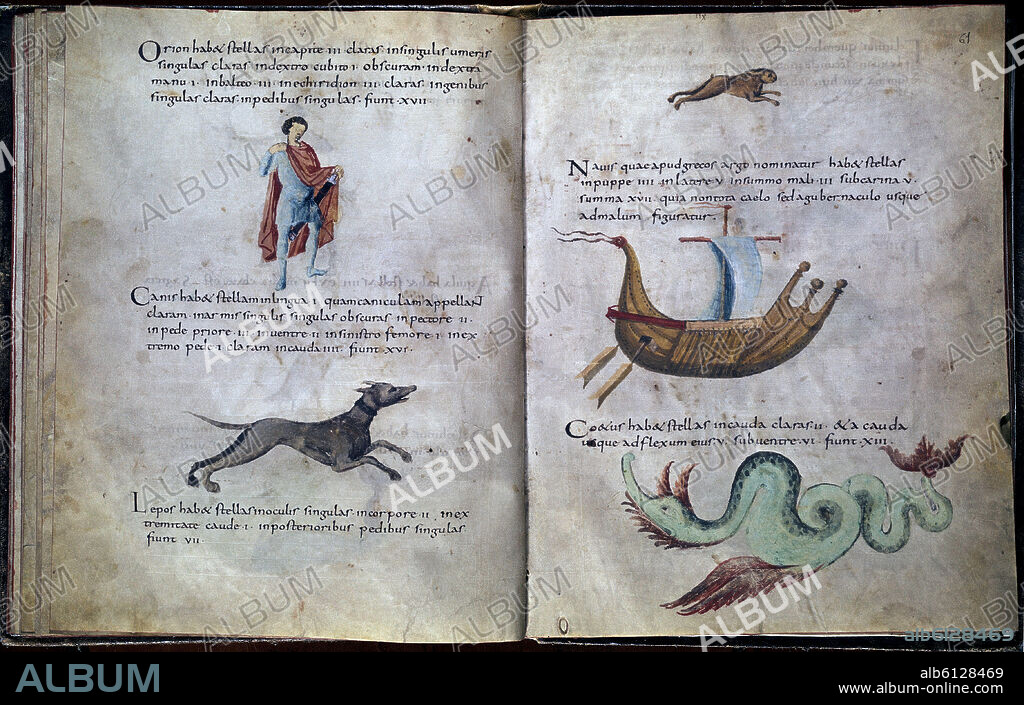 Orion hab& stellas incapite III claras insingulis umeris
singulas claras indextro cubito I obscuram indextra
manu I inbalteo III inenchiridion III claras ingenibus
singulas claras inpedibus singulas fiunt XVII
Canis hab& stellam inlingua I quam caniculam appellant
claram inarmis singulis singulas obscuras inpectore II
inpede priore III inventre II insinistro femore I inex
tremo pede I claram incauda IIII fiunt XVI
Lepos hab& stellas inoculis singulas incorpore II inex
tremitate caude I inposterioribus pedibus singulas
fiunt VII
61
Navis quae apud grecos argo nominatur hab& stellas
inpuppe IIII inlatere V insummo mali III subcarina V
summa XVII quia nontota caelo sed agubernaculo usque
admalum figuratur
hab& stellas incauda claras II &a cauda
usque adflexum eius V subventre VI fiunt XIII
ALBUM
alb6128469
alb6128469
www.album-online.com